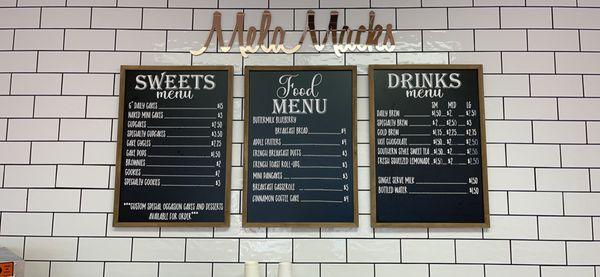 Mela Macks
SWEETS
menu
6" DAILY CAKES $15
NAKED MINI CAKES $5
CUPCAKES $2.50
SPECIALTY CUPCAKES $3.50
CAKE CYCLES $2.25
CAKE POPS $1.50
BROWNIES $2
COOKIES $2
SPECIALTY COOKIES $3
***CUSTOM SPECIAL OCCASION CAKES AND DESSERTS
AVAILABLE FOR ORDER***
Food
MENU
BUTTERMILK BLUEBERRY
BREAKFAST BREAD $4
APPLE FRITTERS $4
FRENCH BREAKFAST PUFFS $3
FRENCH TOAST ROLL-UPS $3
MINI PANCAKES $3
BREAKFAST CASSEROLE $5
CINNAMON COFFEE CAKE $4
DRINKS
menu
SM MED LG
DAILY BREW $1.50 $2 $2.50
SPECIALTY BREW $2 $2.50 $3
COLD BREW $1.75 $2.25 $2.75
HOT CHOCOLATE $1.50 $2 $2.50
SOUTHERN STYLE SWEET TEA $1.50 $2 $2.50
FRESH SQUEEZED LEMONADE $1.50 $2 $2.50
SINGLE SERVE MILK $1.50
BOTTLED WATER $1.50